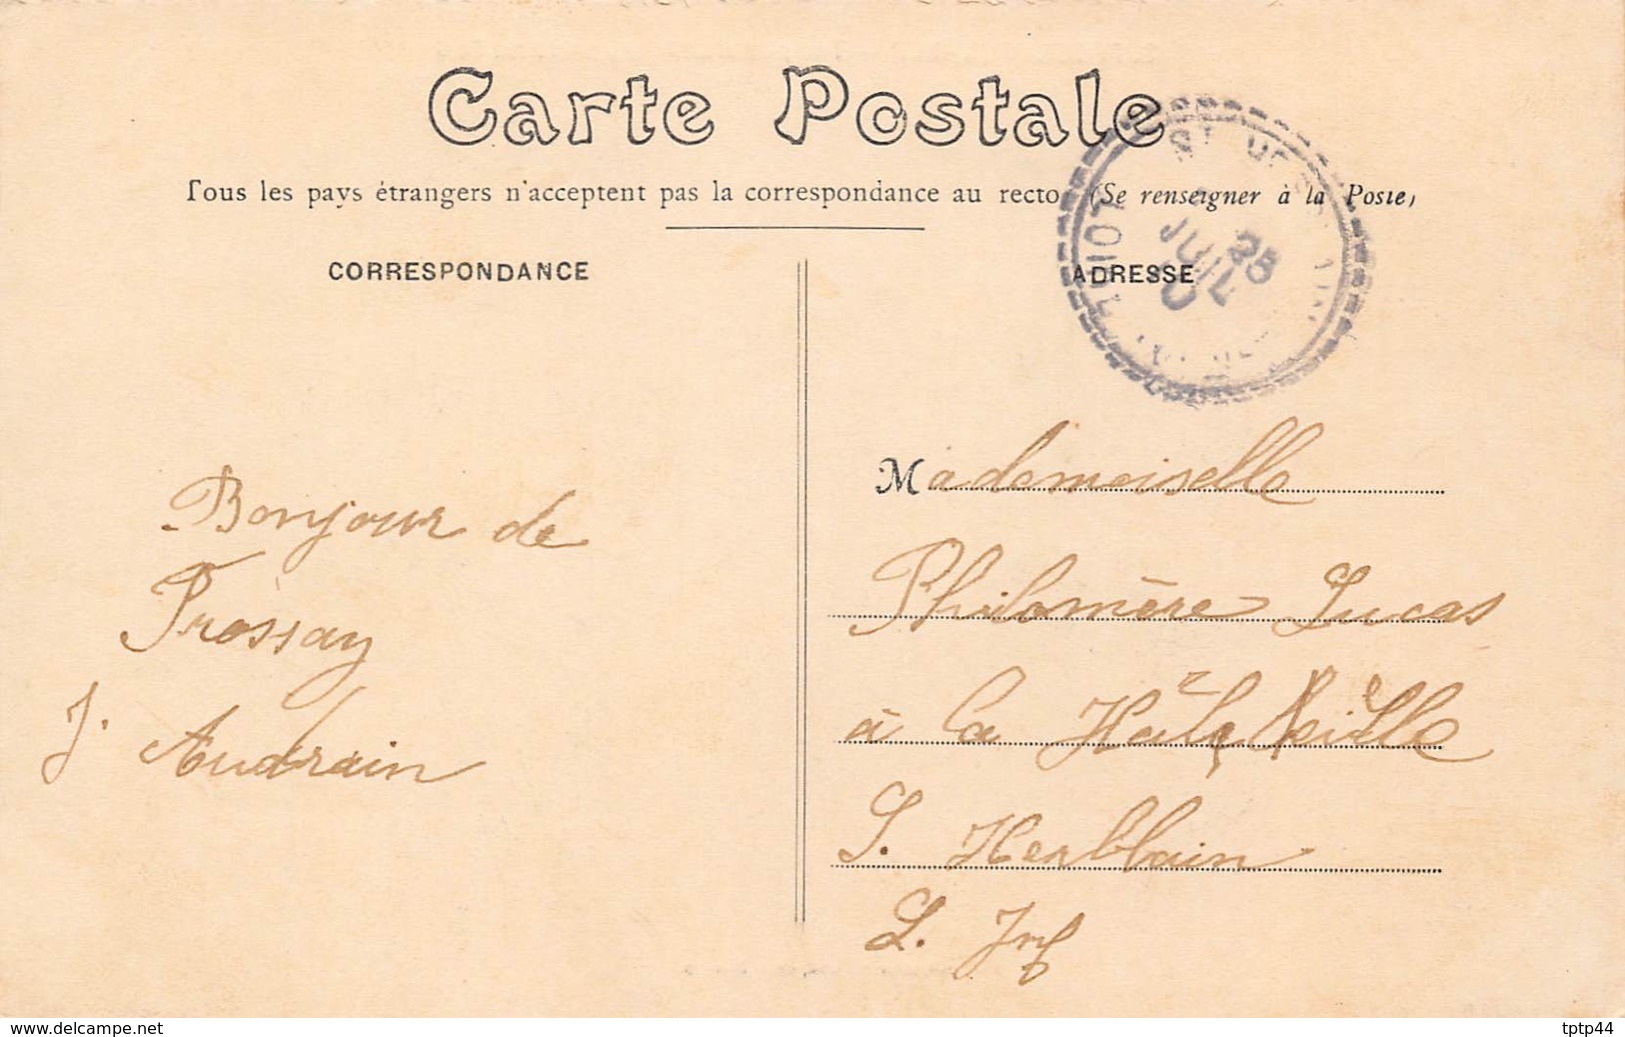 Carte Postale
Tous les pays étrangers n'acceptent pas la correspondance au recto (Se renseigner à la Poste)
CORRESPONDANCE
ADRESSE
25
JUIL
Bonjour de
Frossay
J. Audrain
Mademoiselle
Philomère Lucas
à la
S. Herblain
L. Inf
www.delcampe.net
tptp44